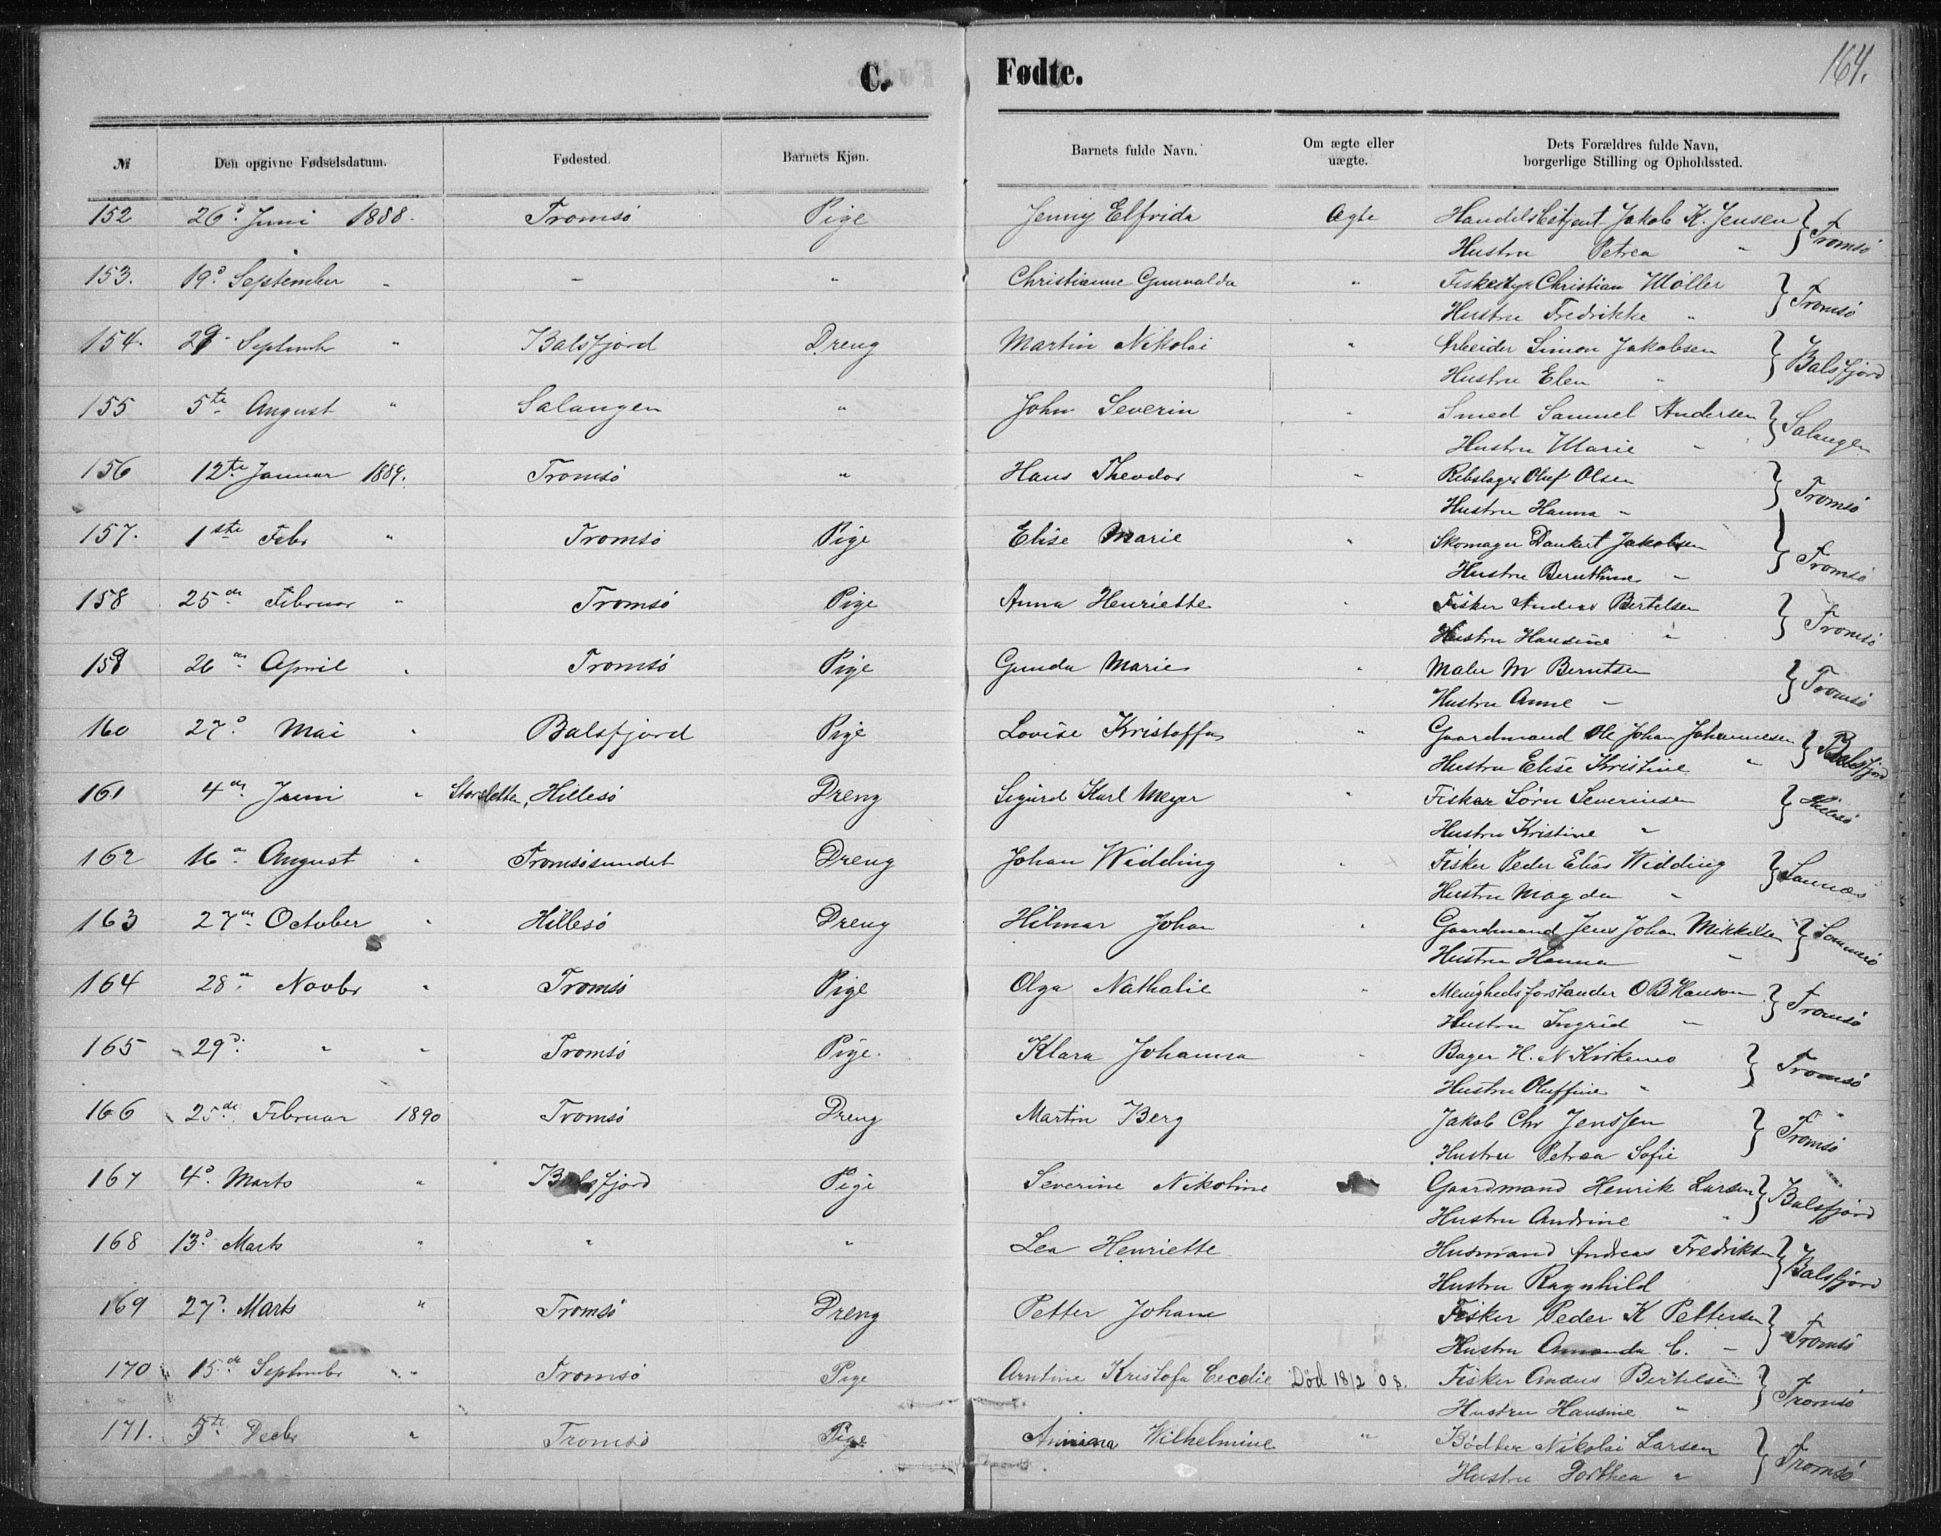 C. Fødte. 164.
№ Den opgivne Fødselsdatum. Fødested. Barnets Kjøn. Barnets fulde Navn. Om ægte eller uægte. Dets Forældres fulde Navn, borgerlige Stilling og Opholdssted.
152 26d Juni 1888. Tromsø Pige Jenny Elfrida Ægte Handelsbetjent Jakob K. Jensen } Tromsø
Hustru Petrea "
153. 19d September " - " Christianne Gunvalda " Christian Møller } Tromsø
Hustru Fredrikke "
154. 29 Septembr " Balsfjord Dreng Martin Nikolai " Arbeider Simon Jakobsen } Balsfjord
Hustru Elen "
155 5te August " Salangen " John Severin " Smed Samuel Andersen } Salangen
Hustru Marie "
156 12te Januar 1889. Tromsø " Hans Theodor " Rebslager Oluf Olsen } Tromsø
Hustru Hanna "
157. 1ste Febr " Tromsø Pige Elise Marie " Skomager Dankert Jakobsen } Tromsø
Hustru Bernthine "
158 25de Februar " Tromsø Pige Anna Henriette " Fisker Andeas Bertelsen } Tromsø
Hustru Hansine "
159 26de April " Tromsø Pige Gunda Marie " Maler M Berntsen } Tromsø
Hustru Anne "
160 27d Mai " Balsfjord Pige Lovise Kristoffa " Gaardmand Ole Johan Johannesen } Balsfjord
Hustru Elise Kristine "
161 4de Juni " Storsletten, Hillesø Dreng Sigurd Karl Meyer " Fisker Sørn Severinsen } Hillesø
Hustru Kristine "
162 16de August " Tromsøsundet Dreng Johan Widding " Fisker Peder Elias Widding }
Hustru Magda "
163 27de October " Hillesø Dreng Hilmar Johan " Gaardmand Jens Johan Mikkelsen } Sommerø
Hustru Hanna "
164 28de Novbr " Tromsø Pige Olga Nathalie " Menighedsforstander O B Hanson } Tromsø
Hustru Ingrid "
165 29d " " Tromsø Pige. Klara Johanna " Bager H. N Kirkemo } Tromsø
Hustru Oluffine "
166 25de Februar 1890 Tromsø Dreng Martin Berg Jakob Chr Jenssen } Tromsø
Hustru Petrea Sofie
167 4d Marts " Balsfjord Pige Severine Nikoline Gaardmand Henrik Larsen } Balsfjord
Hustru Andrine "
168 13d Marts " " " Lea Henriette Husmand Andreas Fredriksn } Balsfjord
Hustru Ragnhild
169 27d Marts " Tromsø Dreng Petter Johan Fisker Peder K Pettersen } Tromsø
Hustru Amanda C. "
170 15de Septembr " Tromsø Pige Arntine Kristofa Cecelie Død 18/2 08. Fisker Andeas Bertelsen } Tromsø
Hustru Hansine "
171. 5te Decbr " Tromsø Pige Wilhelmine " Bødker Nikolai Larsen } Tromsø
Hustru Dorthea "